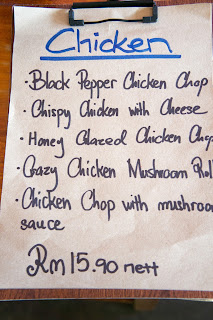 Chicken
· Black Pepper Chicken Chop
· Chispy Chicken with Cheese
· Honey Glazed Chicken Chop
· Crazy Chicken Mushroom Roll
· Chicken Chop with mushroom
sauce
Rm 15.90 nett